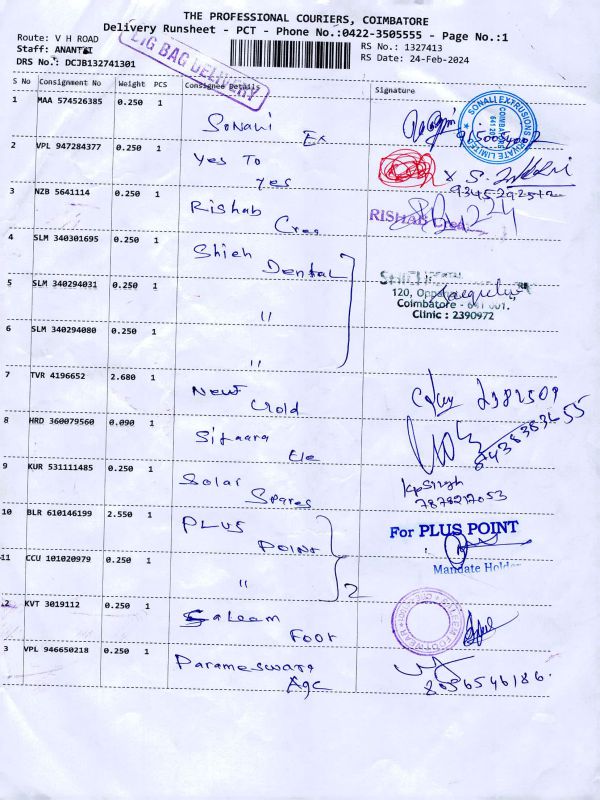 THE PROFESSIONAL COURIERS, COIMBATORE
Delivery Runsheet - PCT - Phone No.:0422-3505555 - Page No.:1
Route: V H ROAD
RS No.: 1327413
Staff: ANANTHI
RS Date: 24-Feb-2024
DRS No.: DCJB132741301
BIG BAG DELIVERY
S No Consignment No Weight PCS Consignee Details Signature
1 MAA 574526385 0.250 1 Sonali Ex
SONALI EXTRUSIONS PRIVATE LIMITED COIMBATORE
2 VPL 947284377 0.250 1 Yes To Yes
3 NZB 5641114 0.250 1 Rishab Creo
RISHAB
4 SLM 340301695 0.250 1 Shieh Dental
DENTAL
5 SLM 340294031 0.250 1 "
120,
Coimbatore - 641 001.
Clinic : 2390972
6 SLM 340294080 0.250 1 "
7 TVR 4196652 2.680 1 New Gold 2382509
8 HRD 360079560 0.090 1 Sitaara Ele
9 KUR 531111485 0.250 1 Solar Spares
KpSingh
7878217053
10 BLR 610146199 2.550 1 PLUS POINT
For PLUS POINT
Mandate Holder
11 CCU 101020979 0.250 1 " 2
2 KVT 3019112 0.250 1 Saleem Foot
3 VPL 946650218 0.250 1 Parameswara Agc
8056546186.